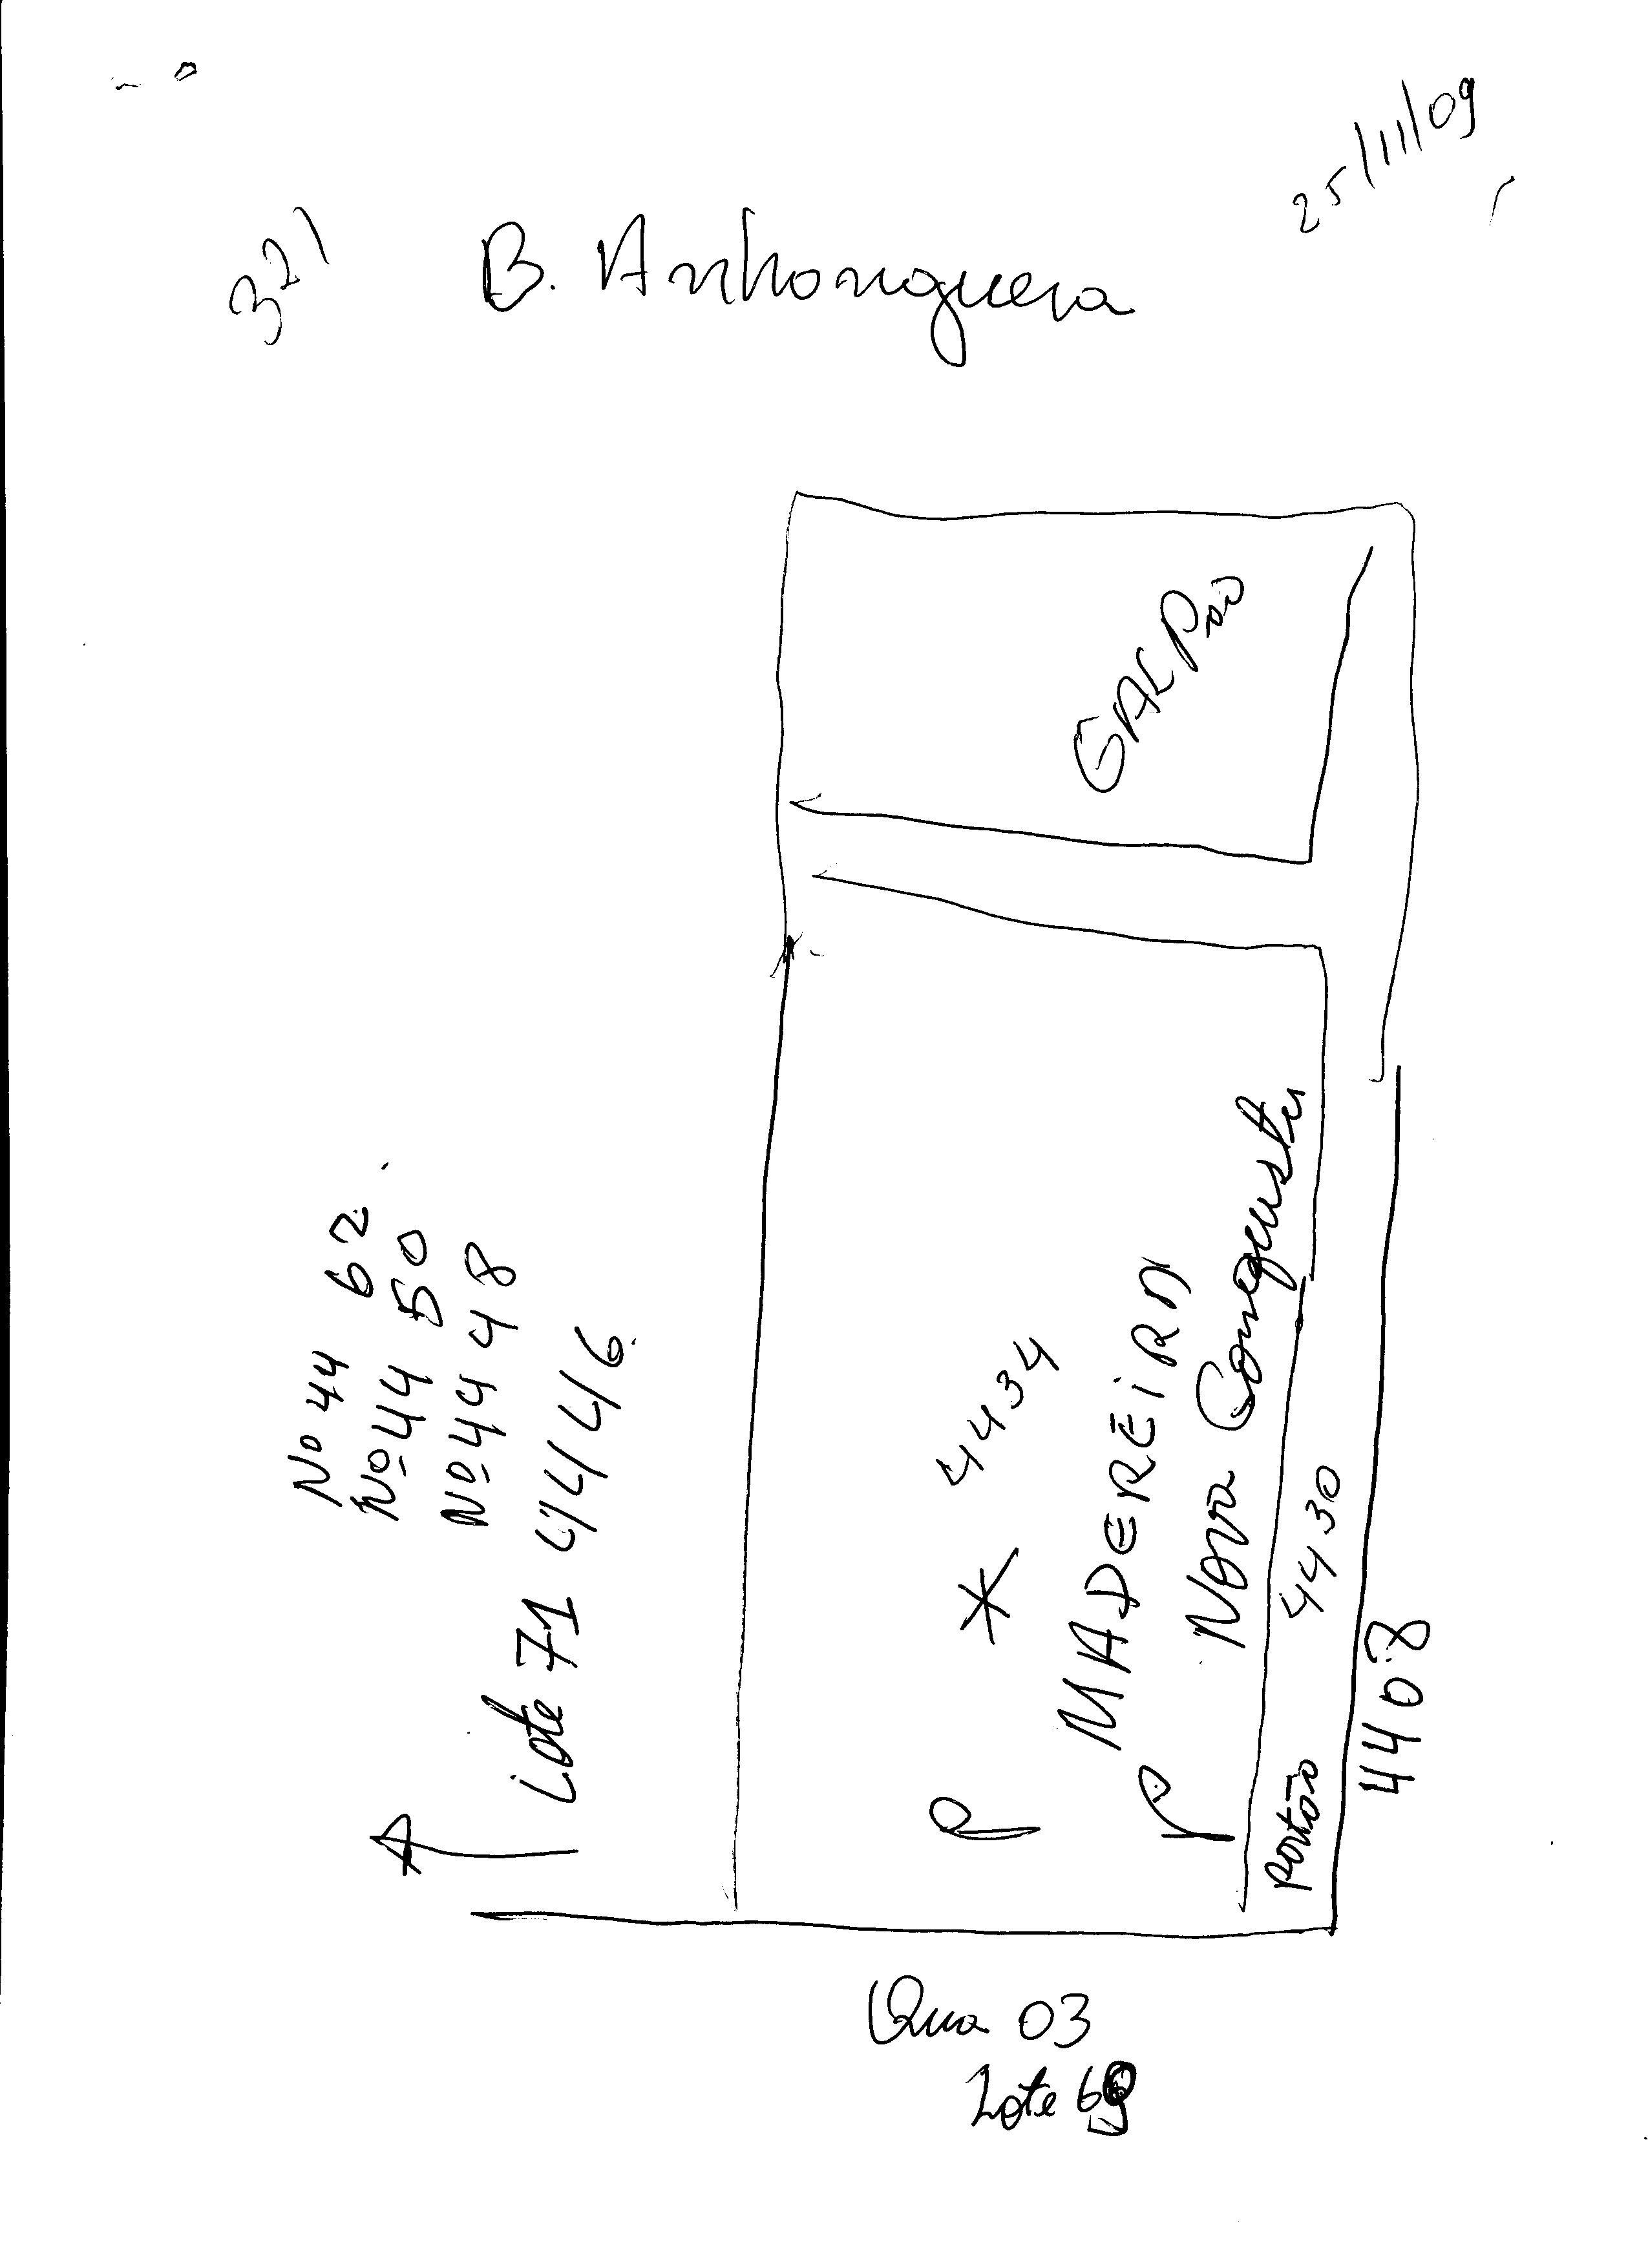 25/11/09
321
B. Anhanguera
GALPão
Nº 44 62
Nº 44 50
Nº 44 48
Lote 71 4446
* 4434
MADEREIRA
Nova Conquista
portão 4430
4408
Qua 03
Lote 69